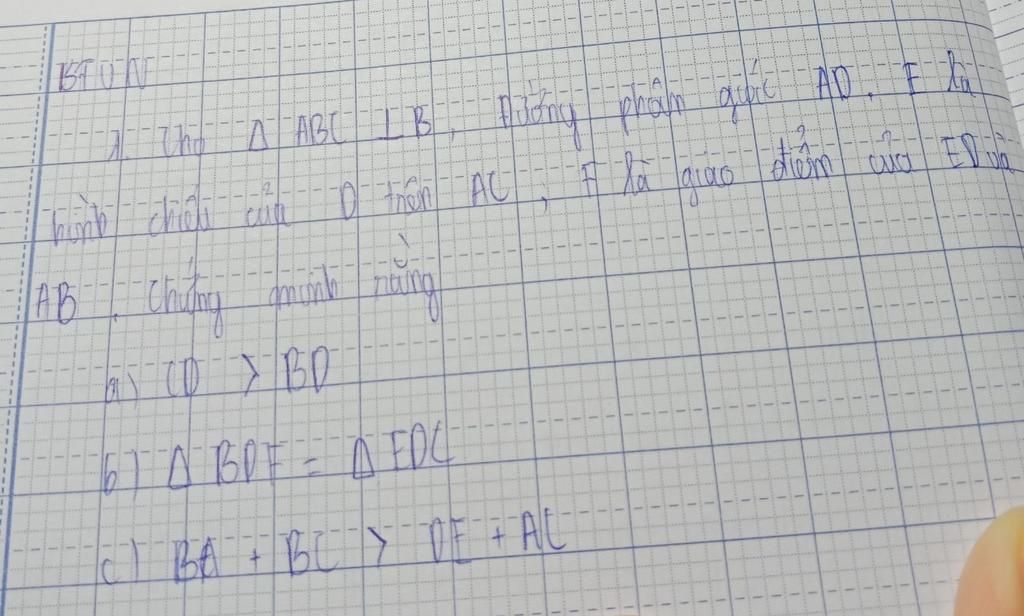 BTVN
1. Cho Δ ABC ⊥ B, Đường phân giác AD. E là
hình chiếu của D trên AC, F là giao điểm của ED và
AB. Chứng minh rằng
a) CD > BD
b) Δ BDF = Δ EDC
c) BA + BC > DE + AC